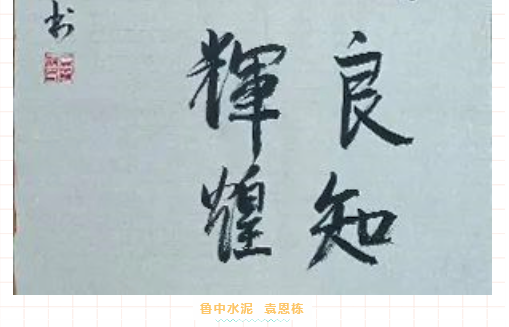 良知
輝煌
书
鲁中水泥 袁恩栋